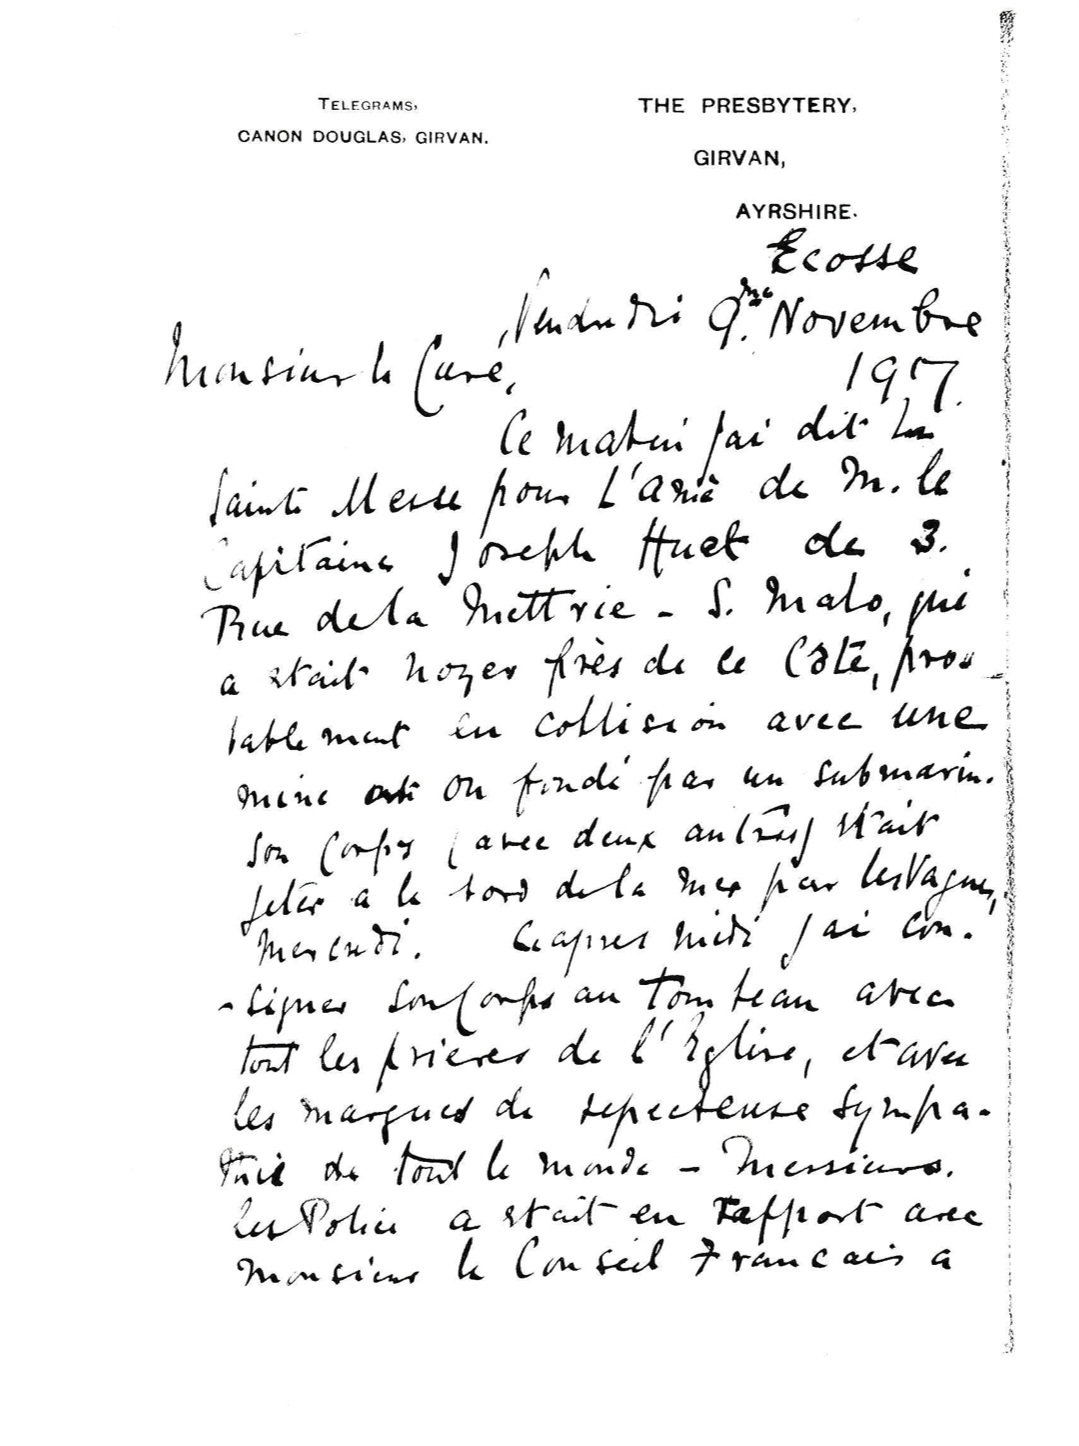 TELEGRAMS,
CANON DOUGLAS, GIRVAN.
THE PRESBYTERY,
GIRVAN,
AYRSHIRE.
Ecosse
Vendredi 9me. Novembre
1917.
Monsieur le Cure,
Ce matin j'ai dit la
Sainte Messe pour l'ame de M. le
Capitaine Joseph Huet de 3.
Rue de la Mettrie - S. Malo, qui
a etait noyer près de ce Côte, pro-
bablement en collision avec une
mine ou fondé par un submarin.
Son corps (avec deux autres) etait
jeter a le bord de la mer par les Vagues,
Mercredi. Ce apres midi j'ai con-
-signer son corps au tombeau avec
tout les prieres de l'Eglise, et avec
les marques de respecteuse sympa-
thie de tout le monde - Messieurs.
les Police a etait en rapport avec
Monsieur le Conseil Francais a